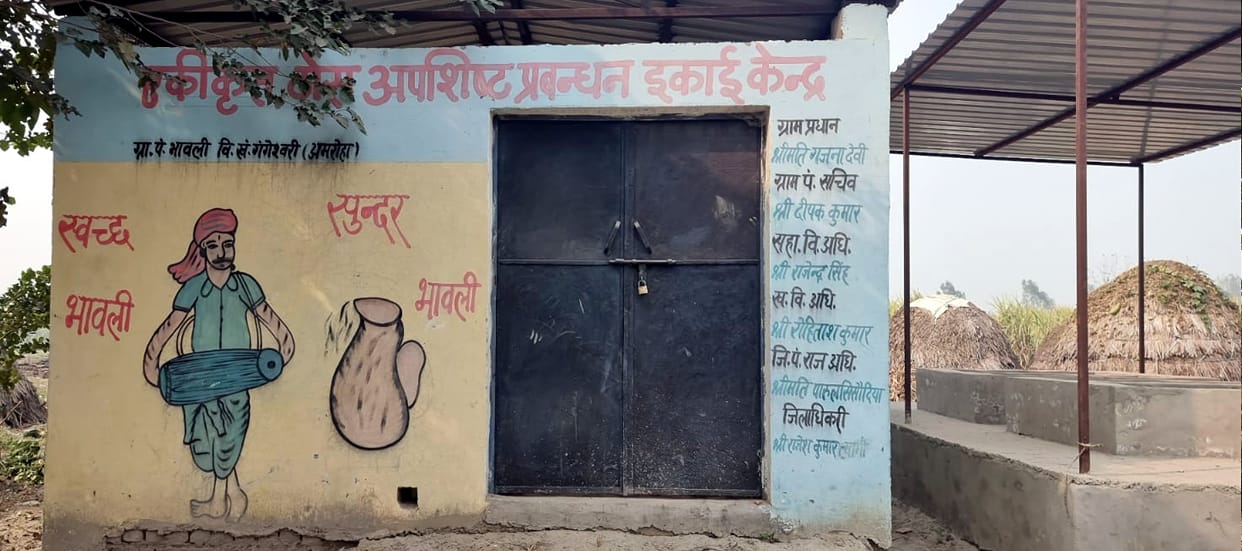 एकीकृत ठोस अपशिष्ट प्रबन्धन इकाई केन्द्र
ग्रा.पं. भावली वि.खं. गंगेश्वरी (अमरोहा)
स्वच्छ
भावली
सुन्दर
भावली
ग्राम प्रधान
श्रीमति गजना देवी
ग्राम पं. सचिव
श्री दीपक कुमार
सहा. वि. अधि.
श्री राजेन्द्र सिंह
ख. वि. अधि.
श्री रोहिताश कुमार
जि. पं. राज अधि.
श्रीमति पारुल सिसौदिया
जिलाधिकरी
श्री राजेश कुमार त्यागी